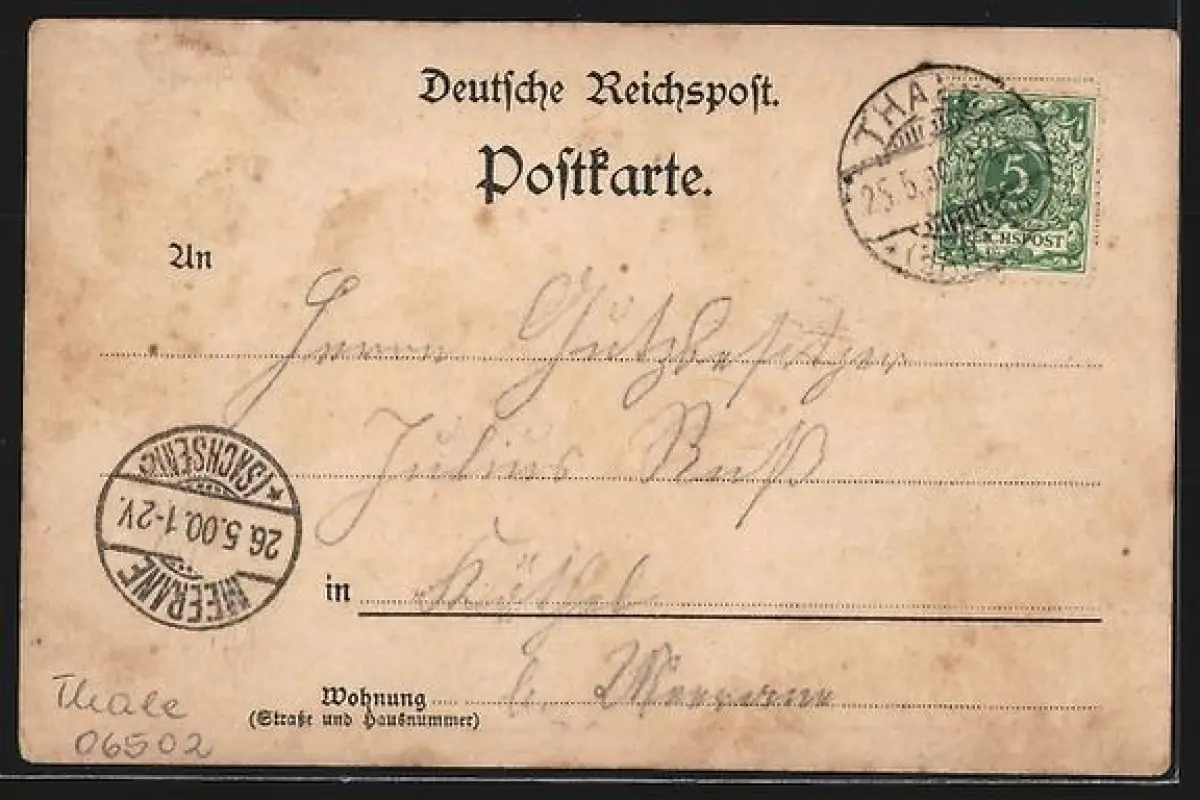 Deutsche Reichspost.
Postkarte.
THALE
25.5.00
5
REICHSPOST
An
Herrn Gutsbesitzer
Julius Ruß
in
b. Meerane
Wohnung
(Straße und Hausnummer)
MEERANE
26.5.00.1-2V.
*(SACHSEN)*
Thale
06502